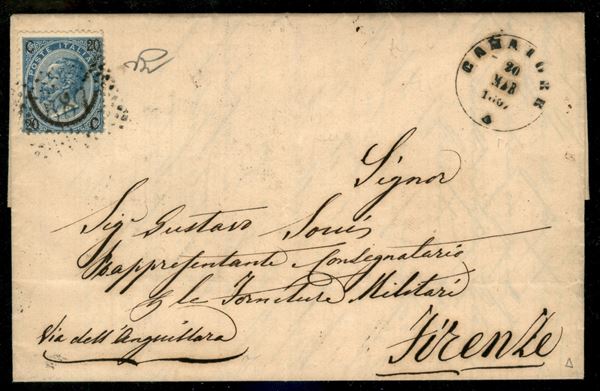 C 20
POSTE ITALIANE
20 C
CAMAIORE
20
MAR
Signor
Sigr Gustavo
Rappresentante Consegnatario
le Forniture Militari
Via dell'Anguillara
Firenze